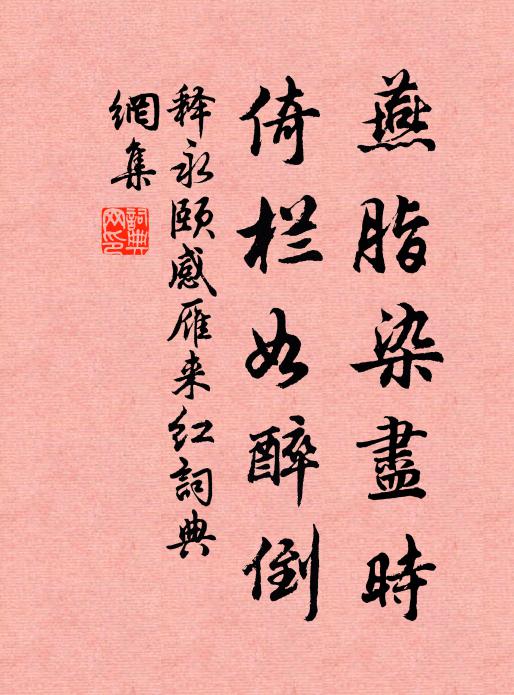 燕脂染盡時
倚栏如醉倒
释永颐感雁来红詞典
網集
詞典
网印